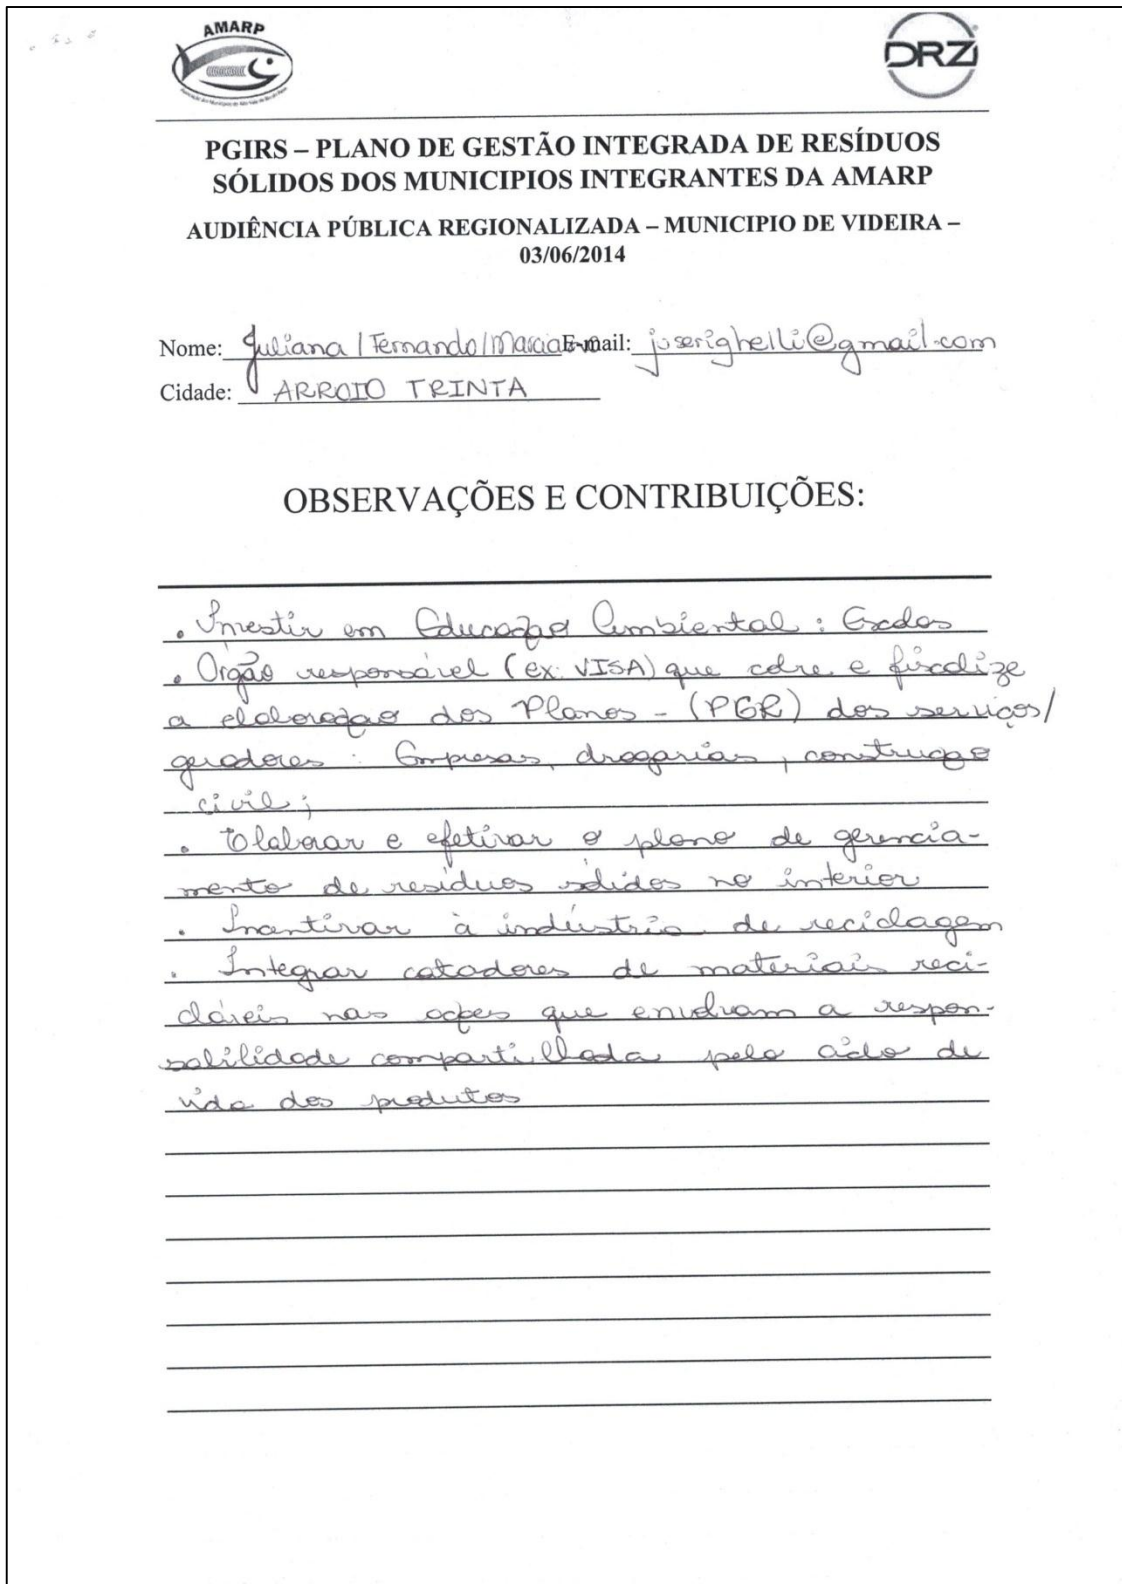 AMARP
DRZ
PGIRS – PLANO DE GESTÃO INTEGRADA DE RESÍDUOS
SÓLIDOS DOS MUNICIPIOS INTEGRANTES DA AMARP
AUDIÊNCIA PÚBLICA REGIONALIZADA – MUNICIPIO DE VIDEIRA –
03/06/2014
Nome: Juliana / Fernando / Marcia E-mail: juserighelli@gmail.com
Cidade: ARROIO TRINTA
OBSERVAÇÕES E CONTRIBUIÇÕES:
. Investir em Educação Ambiental : Escolas
. Orgão responsável (ex: VISA) que cobre e fiscalize
a elaboração dos Planos - (PGR) dos serviços/
geradores : Empresas, drogarias, construção
civil;
. Elaborar e efetivar o plano de gerencia-
mento de resíduos sólidos no interior
. Incentivar à indústria de reciclagem
. Integrar catadores de materiais reci-
cláveis nas ações que envolvam a respon-
sabilidade compartilhada pelo ciclo de
vida dos produtos